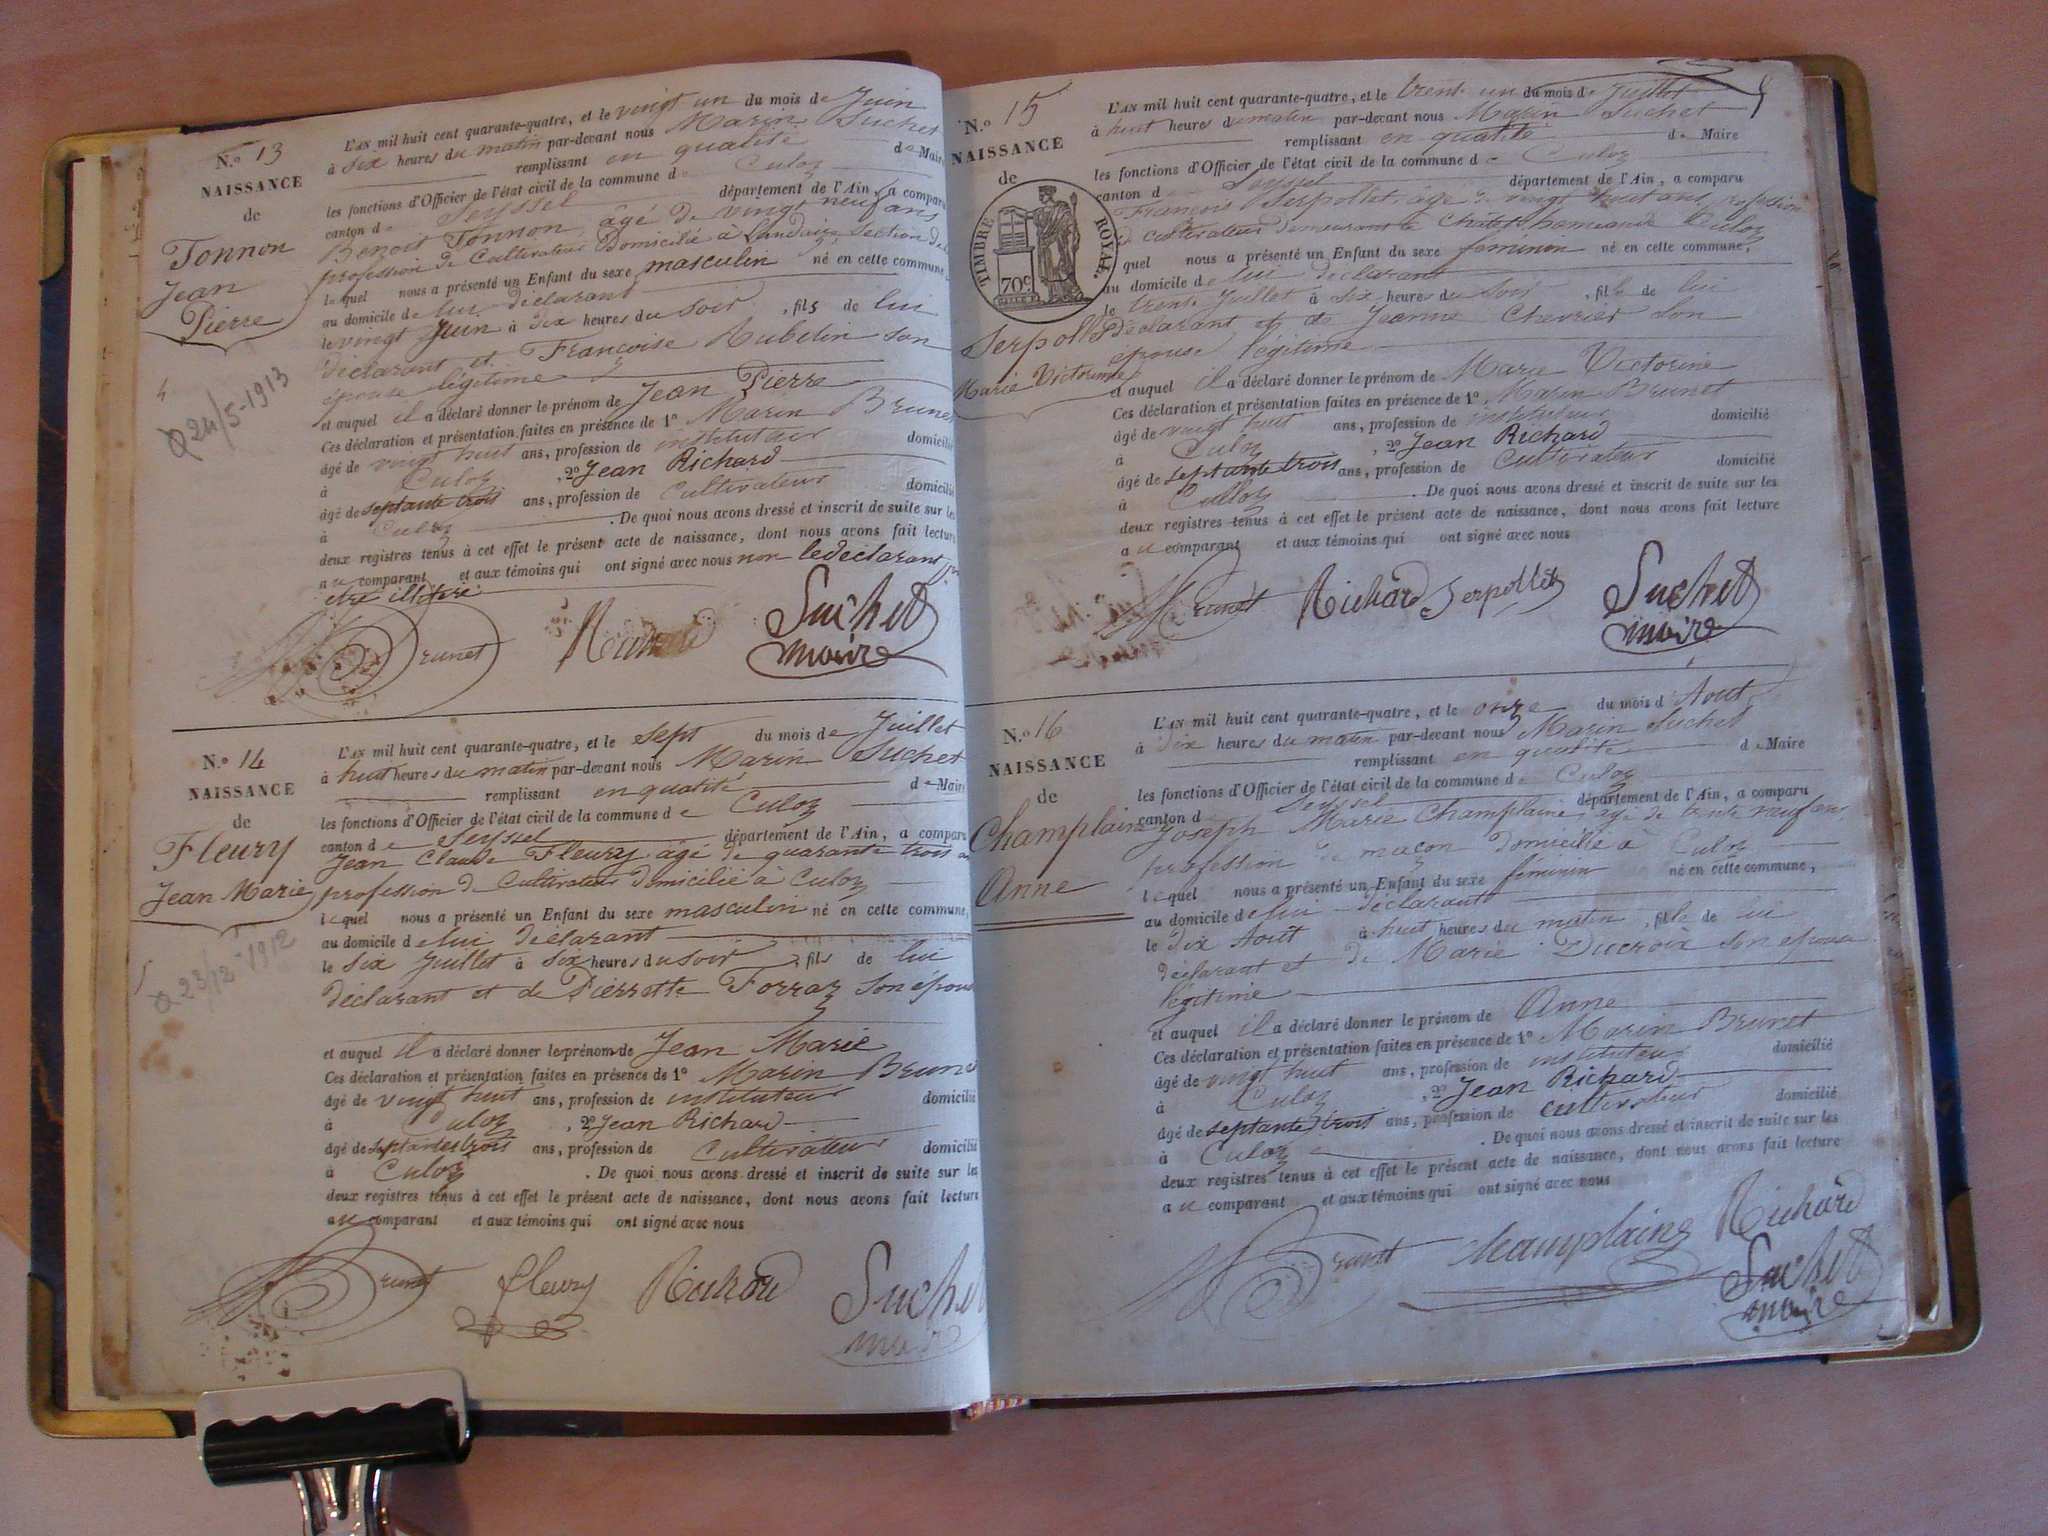 N.o 13
NAISSANCE
de
Tonnon
Jean
Pierre
24/5-1913
L'AN mil huit cent quarante-quatre, et le vingt un du mois de Juin
à six heures du matin par-devant nous Marin Suchet
remplissant en qualité de Maire
les fonctions d'Officier de l'état civil de la commune de Culoz
canton de Seyssel département de l'Ain, a comparu
Benoit Tonnon, âgé de vingt neuf ans
profession de Cultivateur Domicilié à Landaize Section de
lequel nous a présenté un Enfant du sexe masculin né en cette commune,
au domicile de lui déclarant
le vingt Juin à dix heures du soir, fils de lui
déclarant et Françoise Rubelin son
épouse légitime
et auquel il a déclaré donner le prénom de Jean Pierre
Ces déclaration et présentation faites en présence de 1o Marin Brunet
âgé de vingt huit ans, profession de instituteur domicilié
à Culoz, 2o Jean Richard
âgé de septante trois ans, profession de Cultivateur domicilié
à Culoz. De quoi nous avons dressé et inscrit de suite sur les
deux registres tenus à cet effet le présent acte de naissance, dont nous avons fait lecture
au comparant et aux témoins qui ont signé avec nous non le déclarant
être illitéré
Brunet Richard Suchet
maire
N.o 14
NAISSANCE
de
Fleury
Jean Marie
23/12-1912
L'AN mil huit cent quarante-quatre, et le sept du mois de Juillet
à huit heures du matin par-devant nous Marin Suchet
remplissant en qualité de Maire
les fonctions d'Officier de l'état civil de la commune de Culoz
canton de Seyssel département de l'Ain, a comparu
Jean Claude Fleury âgé de quarante trois ans
profession de Cultivateur domicilié à Culoz
lequel nous a présenté un Enfant du sexe masculin né en cette commune,
au domicile de lui déclarant
le six Juillet à six heures du soir, fils de lui
déclarant et de Pierrette Forraz son épouse
et auquel il a déclaré donner le prénom de Jean Marie
Ces déclaration et présentation faites en présence de 1o Marin Brunet
âgé de vingt huit ans, profession de instituteur domicilié
à Culoz, 2o Jean Richard
âgé de septante trois ans, profession de Cultivateur domicilié
à Culoz. De quoi nous avons dressé et inscrit de suite sur les
deux registres tenus à cet effet le présent acte de naissance, dont nous avons fait lecture
au comparant et aux témoins qui ont signé avec nous
Brunet fleury Richard Suchet
maire
N.o 15
NAISSANCE
de
TIMBRE ROYAL.
70c
Serpollet
Marie Victorine
L'AN mil huit cent quarante-quatre, et le trente un du mois de Juillet
à huit heures du matin par-devant nous Marin Suchet
remplissant en qualité de Maire
les fonctions d'Officier de l'état civil de la commune de Culoz
canton de Seyssel département de l'Ain, a comparu
François Serpollet, âgé de vingt huit ans, profession
de cultivateur demeurant à Châtel hameau de Culoz
quel nous a présenté un Enfant du sexe feminin né en cette commune,
au domicile de lui déclarant
le trente Juillet à six heures du soir, fille de lui
déclarant et de Jeanne Chevrier son
épouse légitime
et auquel il a déclaré donner le prénom de Marie Victorine
Ces déclaration et présentation faites en présence de 1o Marin Brunet
âgé de vingt huit ans, profession de instituteur domicilié
à Culoz, 2o Jean Richard
âgé de septante trois ans, profession de Cultivateur domicilié
à Culoz. De quoi nous avons dressé et inscrit de suite sur les
deux registres tenus à cet effet le présent acte de naissance, dont nous avons fait lecture
au comparant et aux témoins qui ont signé avec nous
Brunet Richard Serpollet Suchet
maire
N.o 16
NAISSANCE
de
Champlaine
Anne
L'AN mil huit cent quarante-quatre, et le onze du mois d'Aout
à dix heures du matin par-devant nous Marin Suchet
remplissant en qualité de Maire
les fonctions d'Officier de l'état civil de la commune de Culoz
canton d Seyssel département de l'Ain, a comparu
Joseph Marie Champlaine, âgé de trente neuf ans,
profession de maçon domicilié à Culoz
lequel nous a présenté un Enfant du sexe féminin né en cette commune,
au domicile de lui déclarant
le dix Août à huit heures du matin, fille de lui
déclarant et de Marie Ducroix son épouse
légitime
et auquel il a déclaré donner le prénom de Anne
Ces déclaration et présentation faites en présence de 1o Marin Brunet
âgé de vingt huit ans, profession de instituteur domicilié
à Culoz, 2o Jean Richard
âgé de septante trois ans, profession de cultivateur domicilié
à Culoz. De quoi nous avons dressé et inscrit de suite sur les
deux registres tenus à cet effet le présent acte de naissance, dont nous avons fait lecture
au comparant et aux témoins qui ont signé avec nous
Brunet Champlaine Richard
Suchet
maire